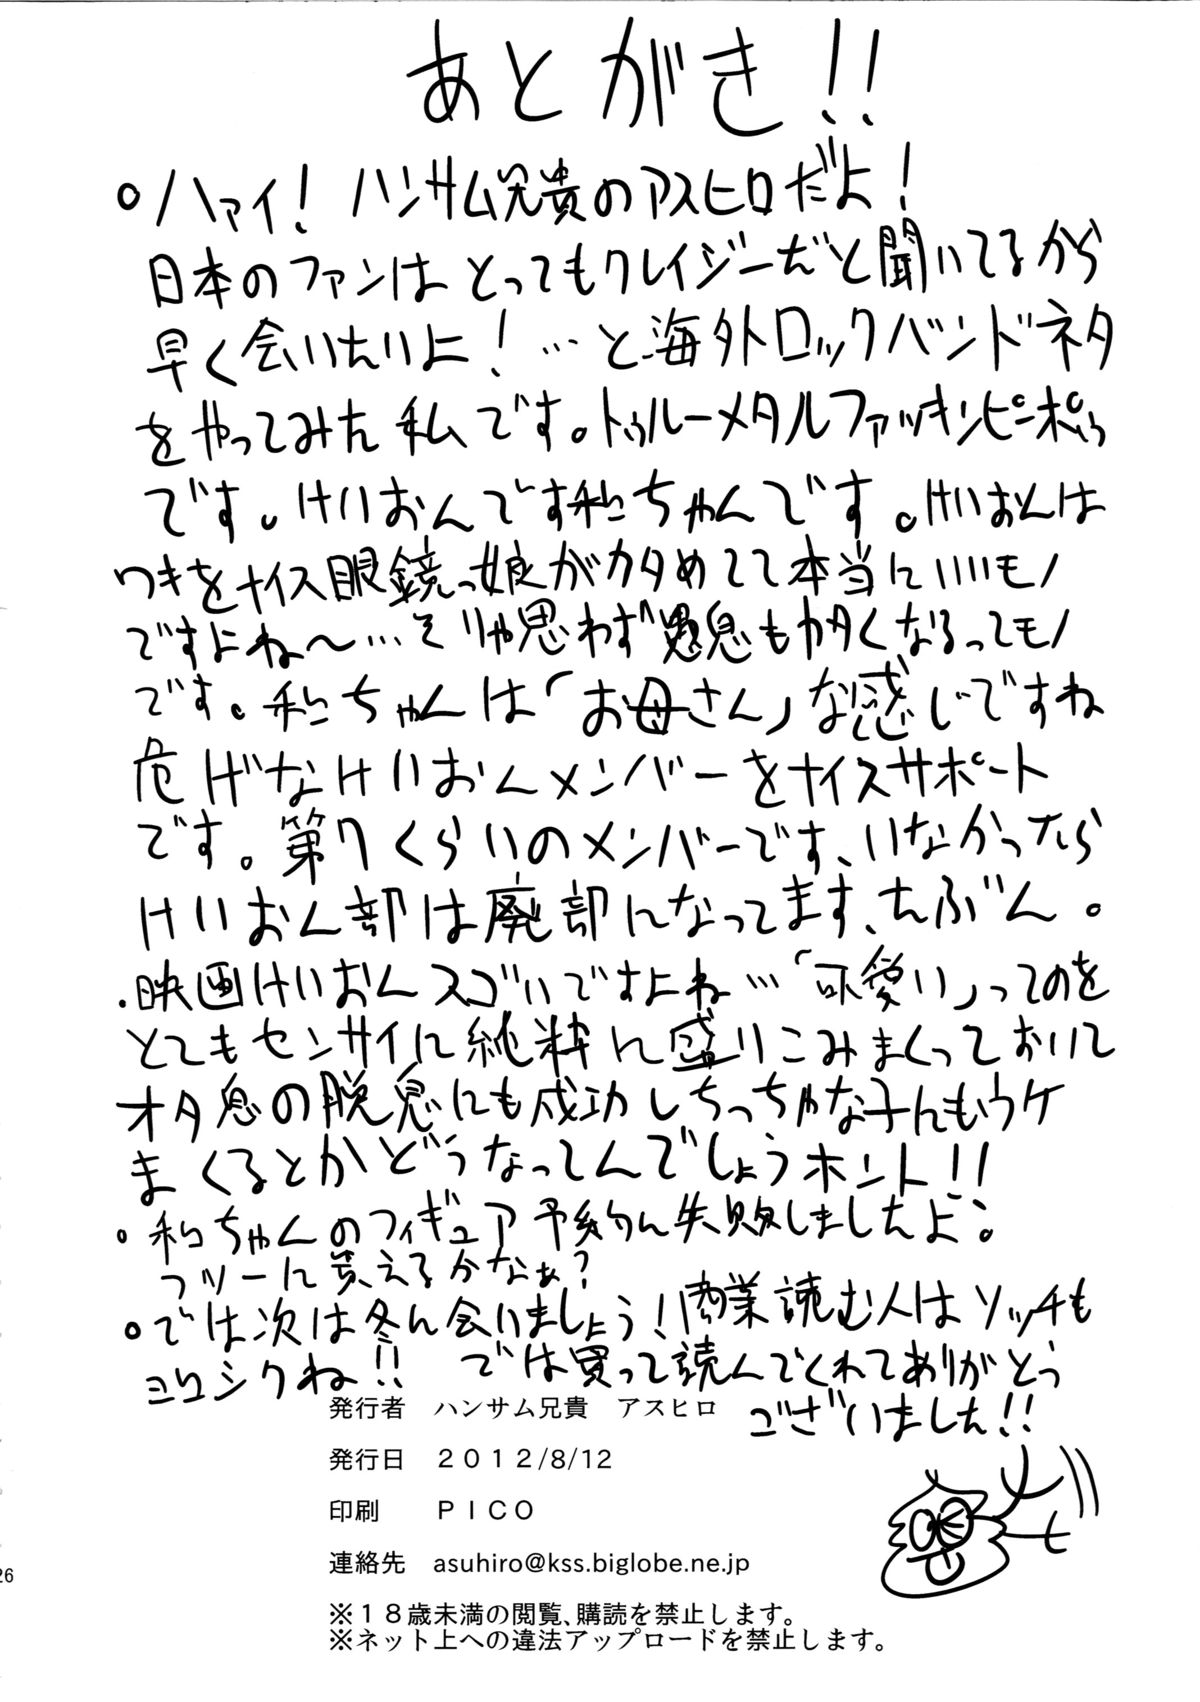 あとがき!!
。ハァイ! ハンサム兄貴のアスヒロだよ!
日本のファンはとってもクレイジーだと聞いてるから
早く会いたいよ!…と海外ロックバンドネタ
をやってみた私です。トゥルーメタルファッキンピーポゥ
です。けいおんです和ちゃんです。けいおんは
ワキをナイス眼鏡っ娘がカタめてて本当にいいモノ
ですよね〜…そりゃ思わず愚息もカタくなるってモノ
です。和ちゃんは「お母さん」な感じですね
危げなけいおんメンバーをナイスサポート
です。第7くらいのメンバーです、いなかったら
けいおん部は廃部になってます、たぶん。
・映画けいおんスゴいですよね…「可愛い」ってのを
とてもセンサイに純粋に盛りこみまくっておいて
オタ息の脱息にも成功しちっちゃな子にもウケ
まくるとかどうなってんでしょうホント!!
。和ちゃんのフィギュア予約に失敗しましたよ。
フツーに買えるかなぁ?
。では次は冬に会いましょう!商業読む人はソッチも
ヨロシクね!! では買って読んでくれてありがとう
ございました!!
発行者 ハンサム兄貴 アスヒロ
発行日 2012/8/12
印刷 PICO
連絡先 asuhiro@kss.biglobe.ne.jp
※18歳未満の閲覧、購読を禁止します。
※ネット上への違法アップロードを禁止します。
26